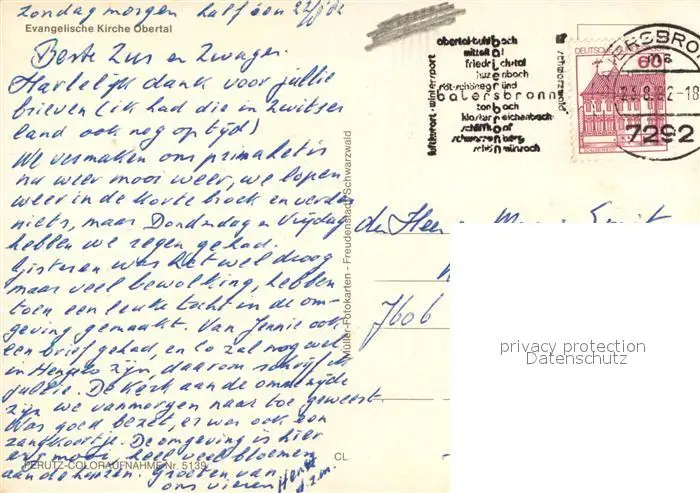 zondag morgen half een 22/8/82
Evangelische Kirche Obertal
Beste Zus en Zwager.
Hartelijk dank voor jullie
brieven (ik had die in Zwitser
land ook nog op tijd)
We vermaken ons prima het is
nu weer mooi weer, we lopen
weer in de korte broek en verder
niets, maar Donderdag en Vrijdag
hebben we regen gehad.
Gisteren was het wel droog
maar veel bewolking, hebben
toen een leuke tocht in de om-
geving gemaakt. Van Jennie ook
een brief gehad, en zo zal nog wel
in Hengelo zijn, daarom schrijf ik
jullie. De Kerk aan de ommezijde
zijn we vanmorgen naar toe geweest.
Was goed bezet, er was ook een
zangkoortje. De omgeving is hier
erg mooi, heel veel bloemen
aan de huizen. Groeten van
ons vieren Henk
PERUTZ-COLORAUFNAHME Nr. 5139
CL
Müller-Fotokarten - Freudenstadt/Schwarzwald
obertal-buhlbach
mitteltal
friedrichstal
huzenbach
röt-schönegründ
baiersbronn
tonbach
klosterreichenbach
schliffkopf
schwarzenberg
schönmünzach
luftkurort·wintersport
schwarzwald
DEUTSCHE
60
BAIERSBRONN
23.8.82-18
7292
den Heer
7606
privacy protection
Datenschutz